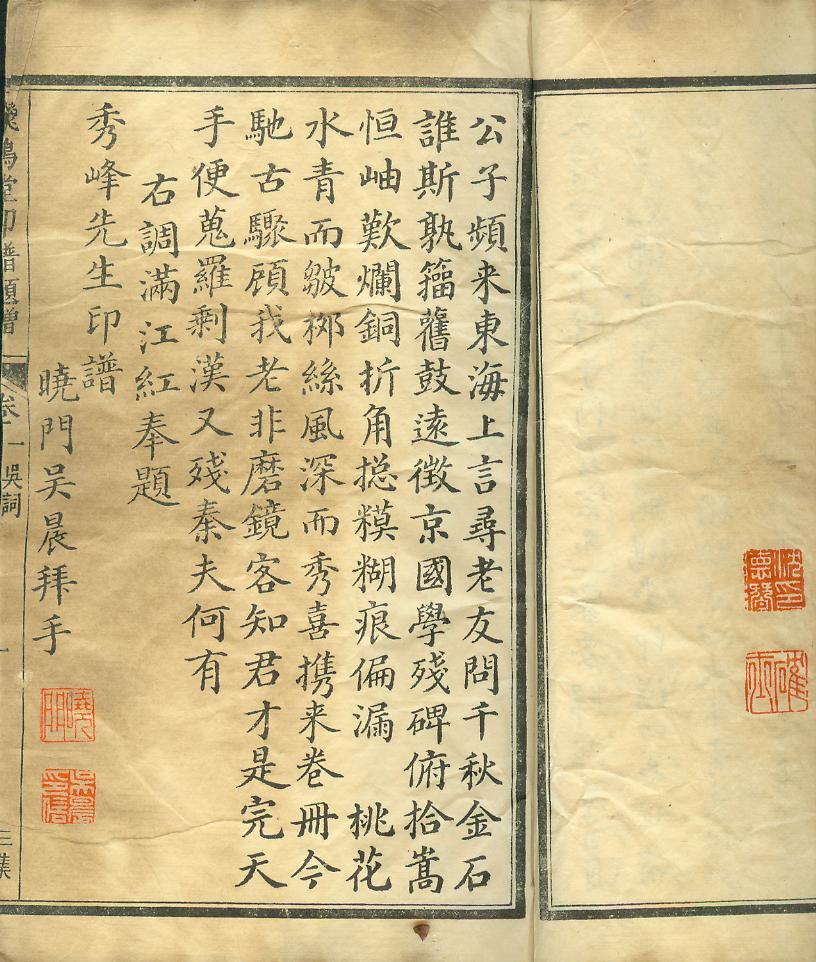 公子頻来東海上言尋老友問千秋金石
誰斯孰籀舊鼓遠徵京國學殘碑俯拾嵩
恒岫歎爛銅折角揔糢糊痕偏漏 桃花
水青而皺栁絲風深而秀喜携来卷冊今
馳古驟顧我老非磨鏡客知君才是完天
手便蒐羅剩漢又殘秦夫何有
右調滿江紅奉題
秀峰先生印譜
曉門吴晨拜手
飛鴻堂印譜題贈
卷一
吳詞
一
三集